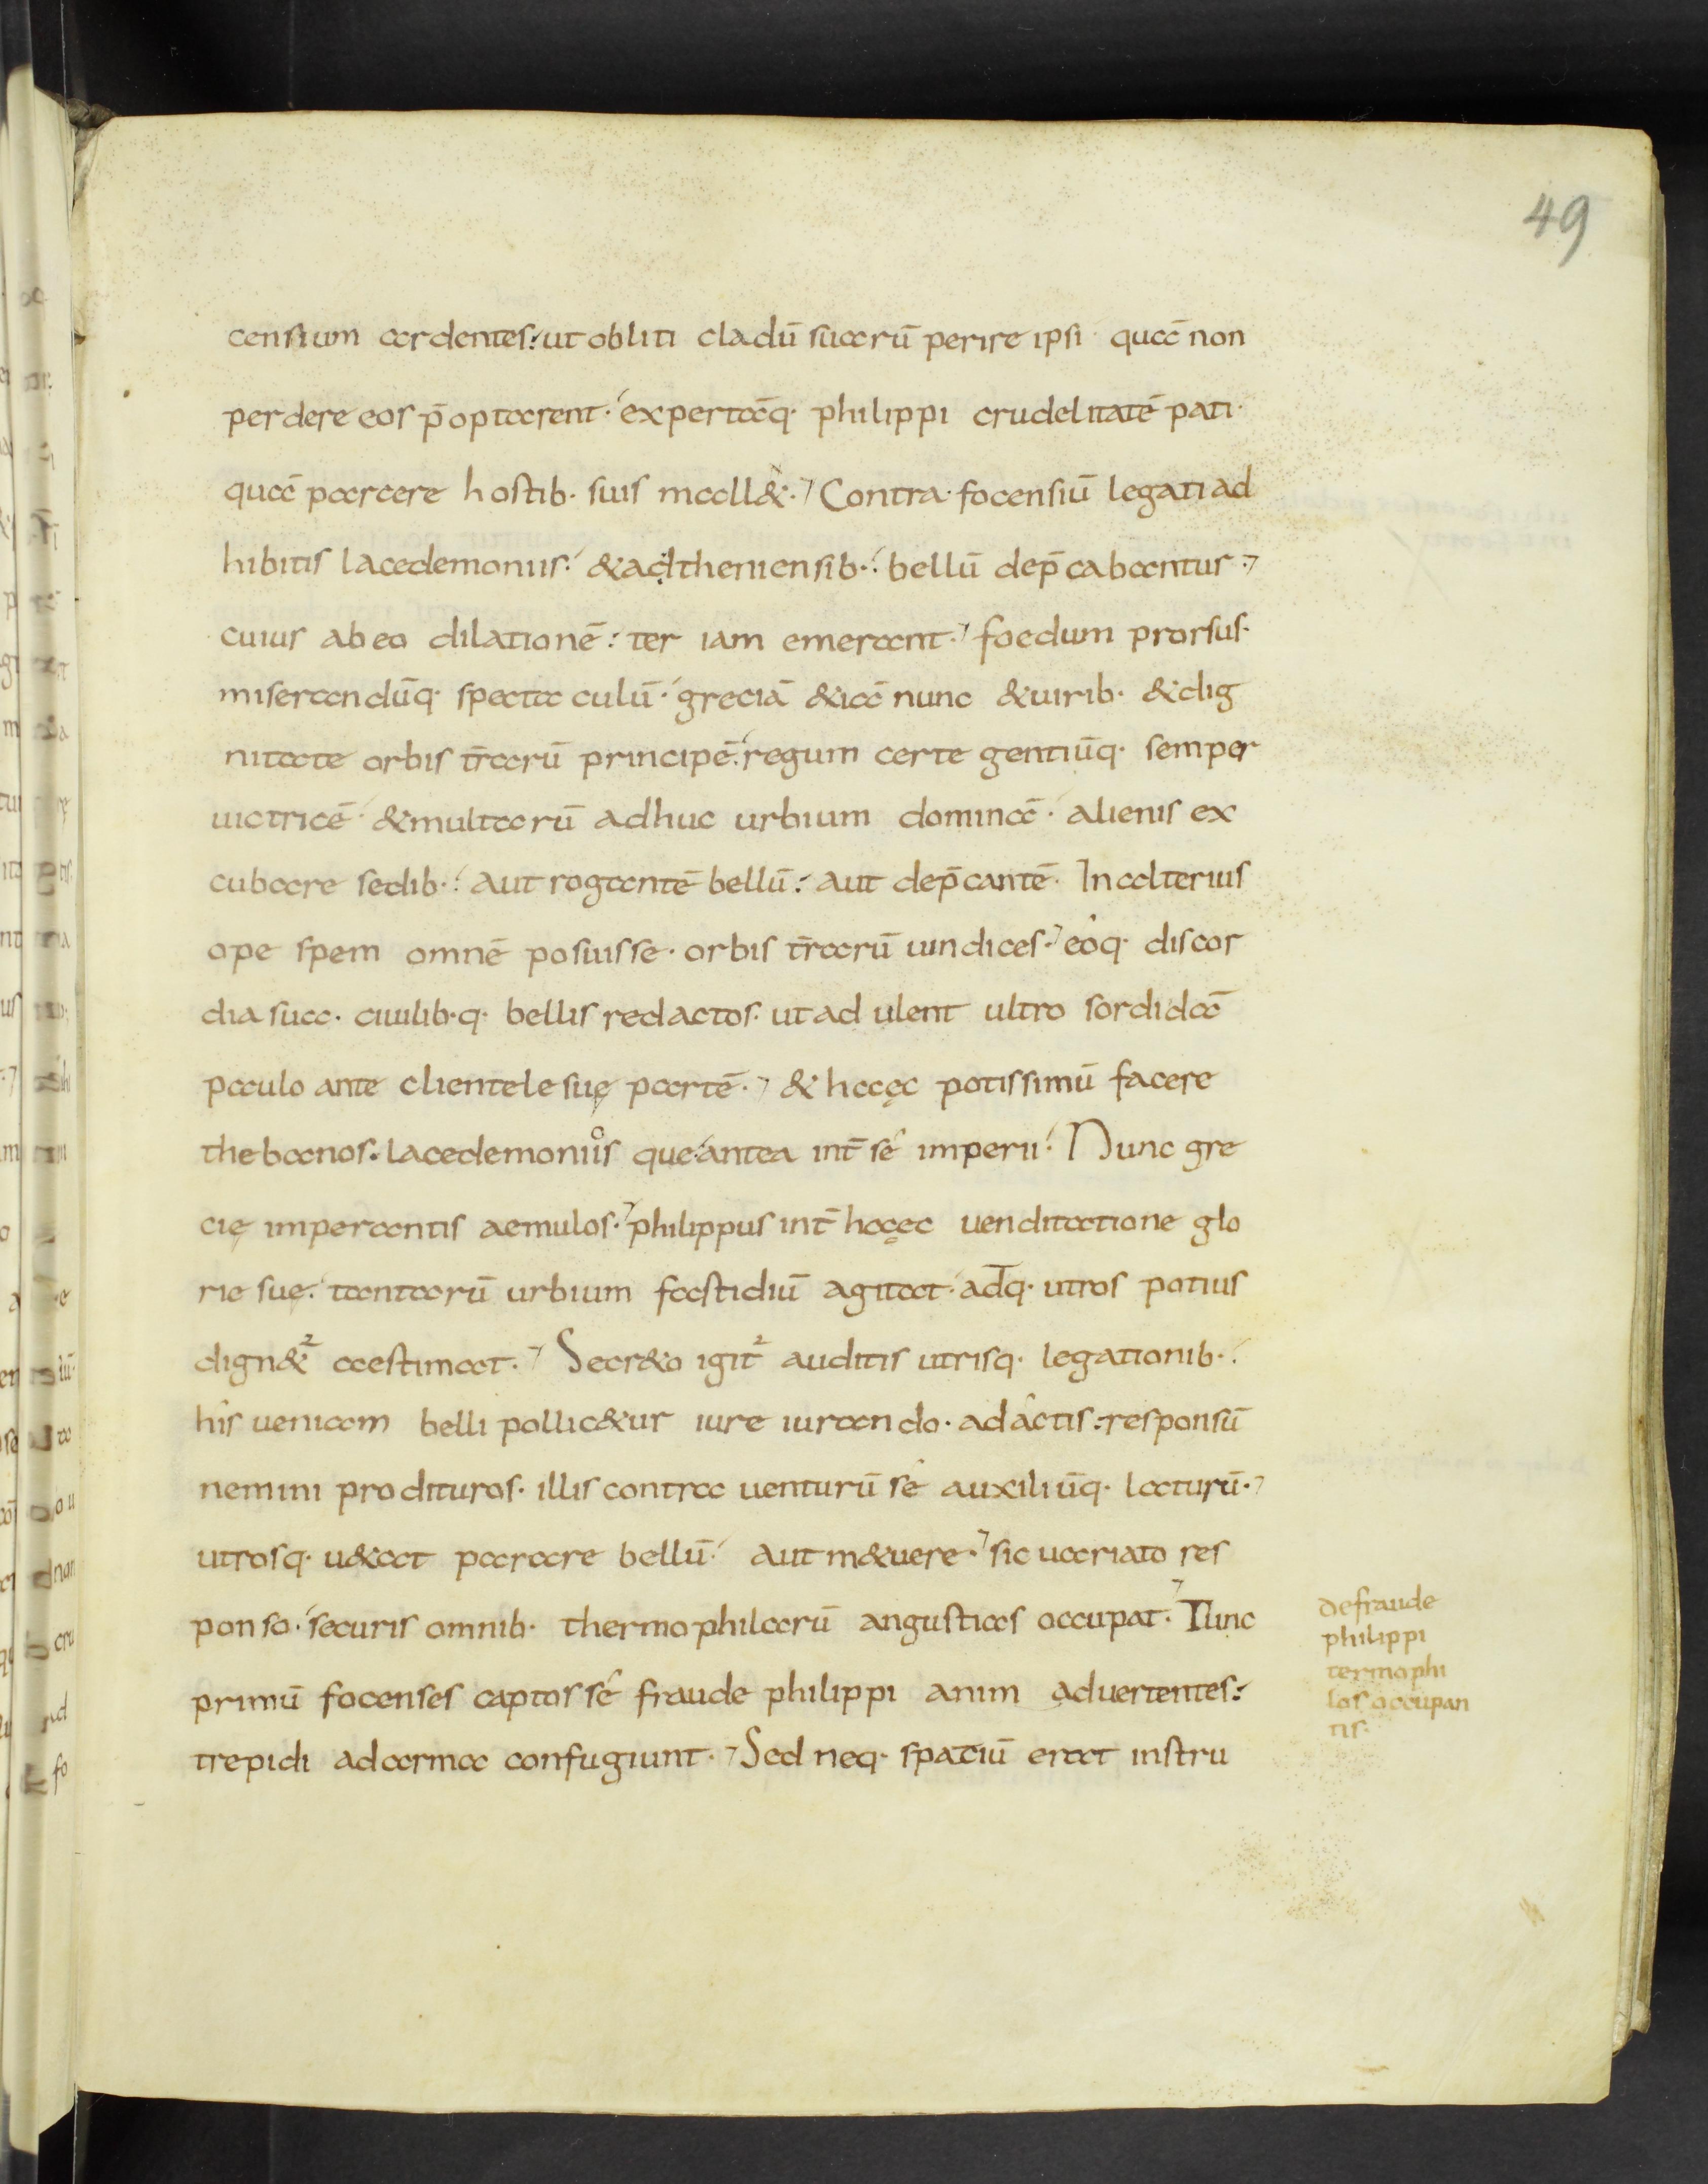 49
censium ardentes: ut obliti cladū suarū perire ipsi quā non
perdere eos p̄optarent· expertāq· philippi crudelitatē pati·
quā parcere hostib· suis mall&· Contra· focensiū legati ad
hibitis lacedemoniis: & adtheniensib·: bellū dep̄cabantur:
cuius ab eo dilationē: ter iam emerant· foedum prorsus·
miserandūq· spectaculū· greciā &iā nunc &uirib· &dig
nitate orbis t̄rarū principē: regum certe gentiūq· semper
uictricē· &multarū adhuc urbium dominā· alienis ex
cubare sedib·: aut rogantē bellū: aut dep̄cantē· In alterius
ope spem omnē posuisse· orbis t̄rarū uindices· eóq· discor
dia sua· ciuilib·q· bellis redactos· ut adulent ultro sordidā
paulo ante clientele suę partē· & haęc potissimū facere
thebanos· lacedemoniůs que·antea int̄ sé imperii· Nunc gre
cię imperantis aemulos· philippus int̄ haęc uenditatione glo
rie suę: tantarū urbium fastidiū agitat· adq· utros potius
dign&ᷣ aestimat· Secr&o igitᷣ auditis utrisq· legationib·:
hís ueniam belli pollic&ur iure iurando· adactis: responsū
nemini prodituros· illis contra uenturū sé auxiliūq· laturū·
utrosq· u&at parare bellū· aut m&uere· sic uariato res
ponso· securis omnib· thermophilarū angustias occupat· Tunc
primū focenses captos sé fraude philippi anim aduertentes:
trepidi ad arma confugiunt· Sed neq· spatiū erat instru
defraude
philippi
termophi
las occupan
tis·